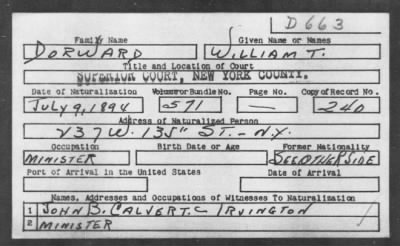 D 663
Family Name Given Name or Names
DORWARD WILLIAM T.
Title and Location of Court
SUPERIOR COURT, NEW YORK COUNTY.
Date of Naturalization Volume or Bundle No. Page No. Copy of Record No.
JULY 9, 1894 571 — 240
Address of Naturalized Person
237 W. 135" ST. - N.Y.
Occupation Birth Date or Age Former Nationality
MINISTER SEE OTHER SIDE
Port of Arrival in the United States Date of Arrival
Names, Addresses and Occupations of Witnesses To Naturalization
1 JOHN B. CALVERT. IRVINGTON
2 MINISTER